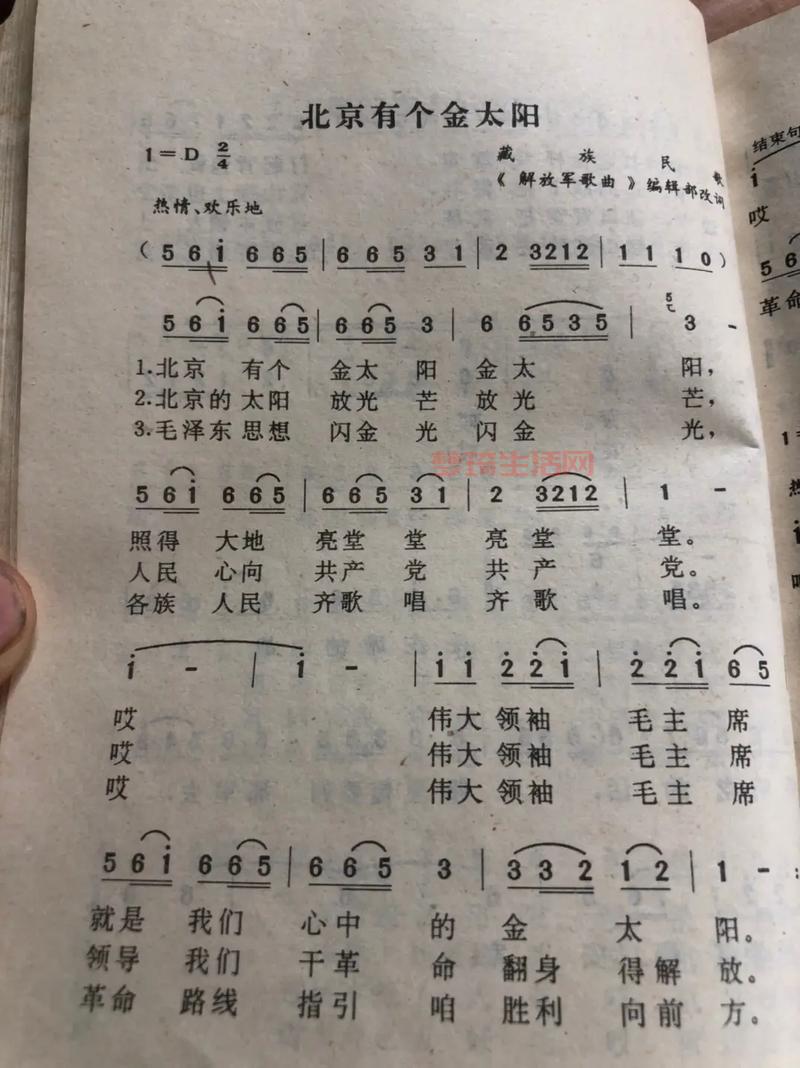 北京有个金太阳
1=D 2/4
藏族民歌
《解放军歌曲》编辑部改词
热情、欢乐地
(5 6 i 6 6 5 | 6 6 5 3 1 | 2 3212 | 1 1 1 0)
5 6 i 6 6 5 | 6 6 5 3 | 6 6 5 3 5 | 3 -
1.北京 有个 金太 阳 金太 阳,
2.北京的 太阳 放光 芒 放光 芒,
3.毛泽东 思想 闪金 光 闪金 光,
梦琦生活网
5 6 i 6 6 5 | 6 6 5 3 1 | 2 3212 | 1 -
照得 大地 亮堂 堂 亮堂 堂。
人民 心向 共产 党 共产 党。
各族 人民 齐歌 唱 齐歌 唱。
i - | i - | i i 2 2 i | 2 2 i 6 5
哎 伟大 领袖 毛主席
哎 伟大 领袖 毛主席
哎 伟大 领袖 毛主席
5 6 i 6 6 5 | 6 6 5 3 | 3 3 2 1 2 | 1 - :
就是 我们 心中 的 金 太 阳。
领导 我们 干革 命 翻身 得解 放。
革命 路线 指引 咱 胜利 向前 方。
结束句
i
哎
5 6
革命
1=